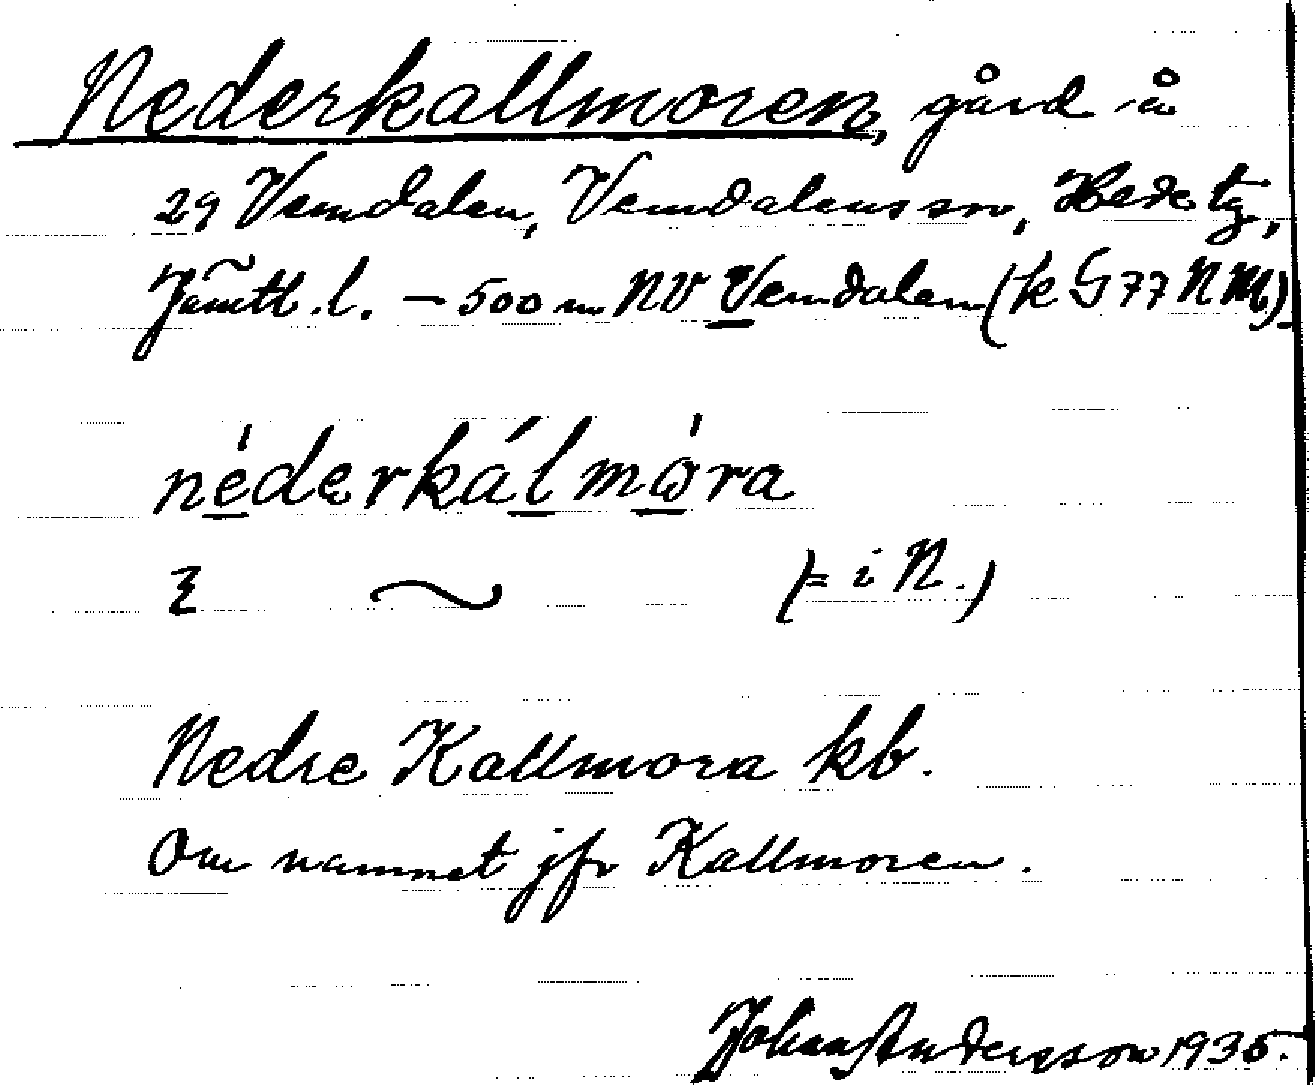 Nederkallmoren, gård å
29 Vemdalen, Vemdalens sn, Hede tg,
Jämtl. l. – 500 m NV Vemdalen (k G 77 NM).
néderkálmὼra
ξ ~ (= i N.)
Nedre Kallmora kb.
Om namnet jfr Kallmoren.
Johan Andersson 1935.